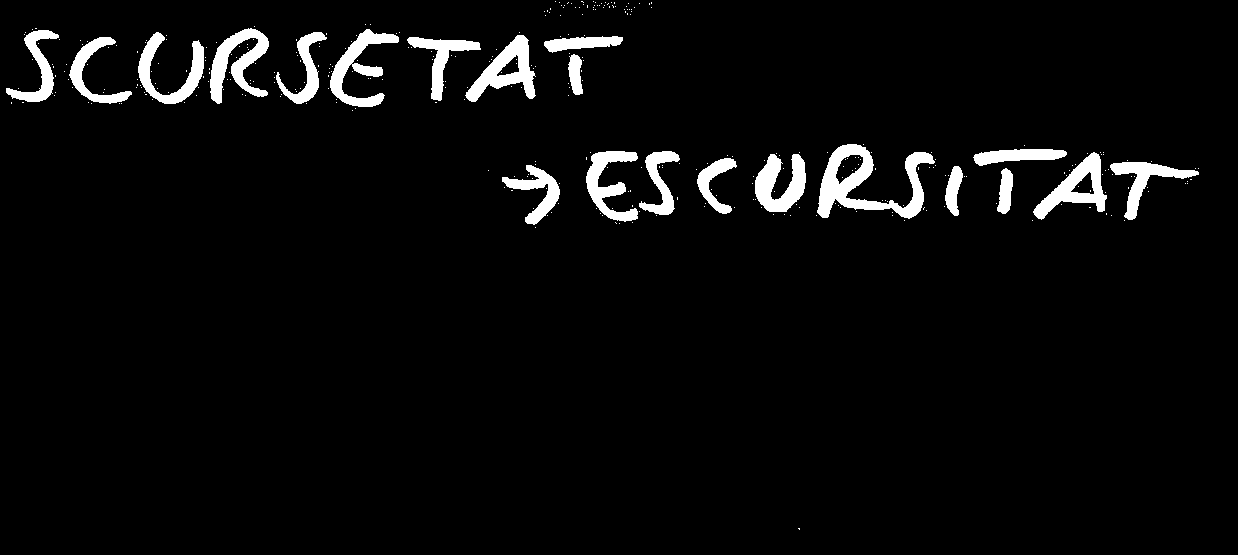 SCURSETAT
→ESCURSITAT